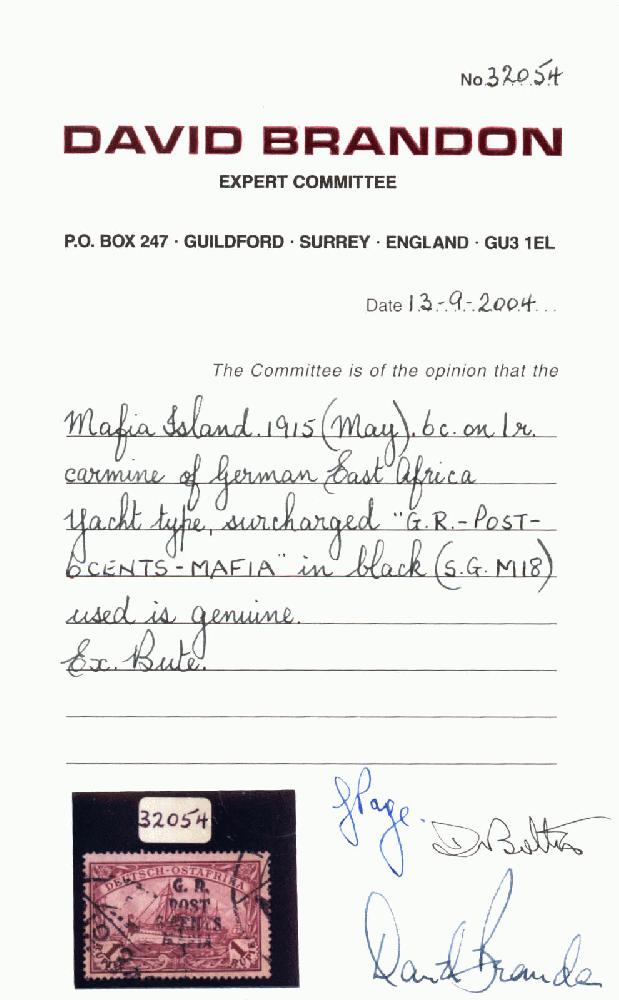 No. 32054
DAVID BRANDON
EXPERT COMMITTEE
P.O. BOX 247 · GUILDFORD · SURREY · ENGLAND · GU3 1EL
Date 13-9-2004
The Committee is of the opinion that the
Mafia Island. 1915 (May). 6c. on 1r.
carmine of German East Africa
Yacht type, surcharged "G.R.-POST-
6 CENTS-MAFIA" in black (S.G. M18)
used is genuine.
Ex. Bute.
32054
DEUTSCH-OSTAFRIKA
G. R.
POST
6 CENTS
MAFIA
1 1
Page.
D. Bolton
David Brandon